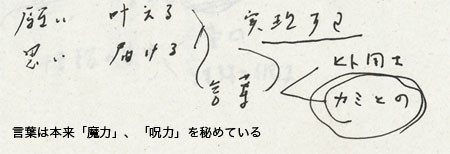 願い 叶える
思い 届ける
実現する
言葉
ヒト同士
カミとの
言葉は本来「魔力」、「呪力」を秘めている